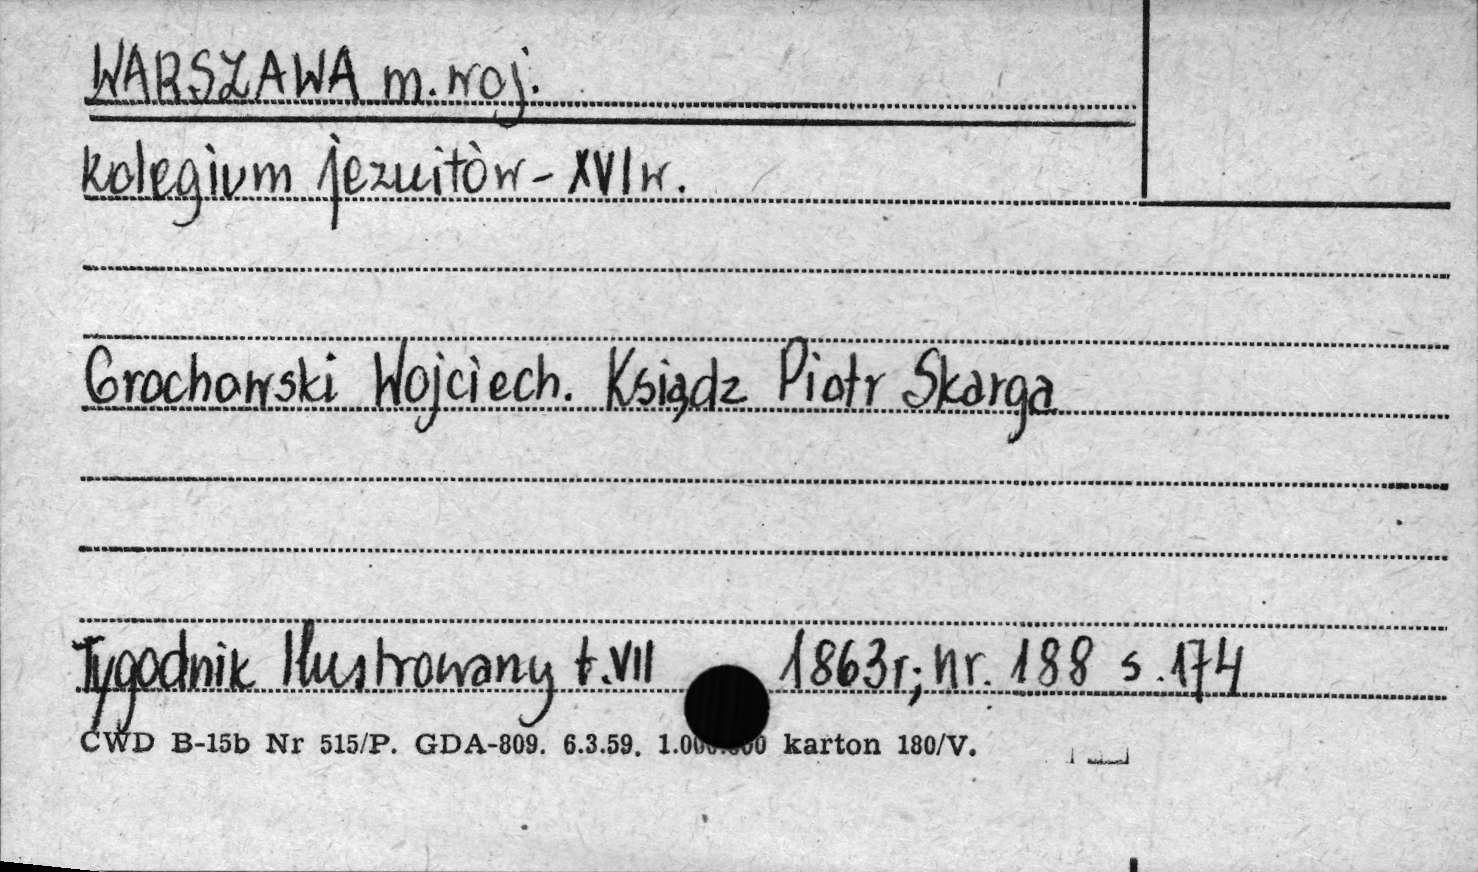 WARSZAWA m. woj.
Kolegium jezuitów - XVI w.
Grochowski Wojciech. Ksiądz Piotr Skarga
Tygodnik Ilustrowany t. VII 1863r; nr. 188 s. 174
CWD B-15b Nr 515/P. GDA-809. 6.3.59. 1.000.000 karton 180/V.